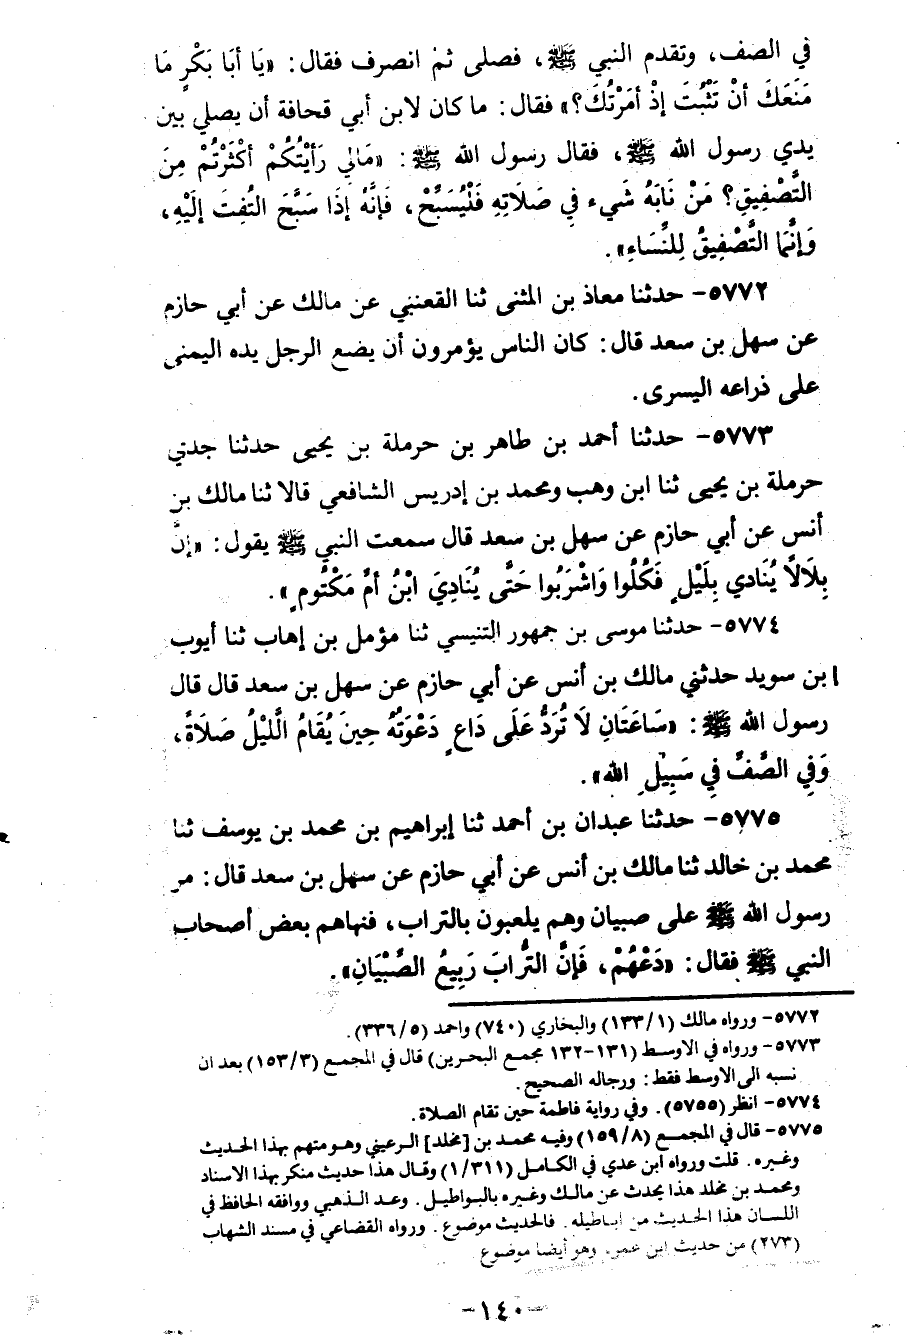 في الصف، وتقدم النبي ﷺ، فصلى ثم انصرف فقال: «يَا أَبَا بَكْرٍ مَا
مَنَعَكَ أَنْ تَثْبُتَ إِذْ أَمَرْتُكَ؟» فقال: ما كان لابن أبي قحافة أن يصلي بين
يدي رسول الله ﷺ، فقال رسول الله ﷺ: «مَالِي رَأَيْتُكُمْ أَكْثَرْتُمْ مِنَ
التَّصْفِيقِ؟ مَنْ نَابَهُ شَيء فِي صَلَاتِهِ فَلْيُسَبِّحْ، فَإِنَّهُ إِذَا سَبَّحَ التُفِتَ إِلَيْهِ،
وَإِنَّمَا التَّصْفِيقُ لِلنِّسَاءِ».
٥٧٧٢- حدثنا معاذ بن المثنى ثنا القعنبي عن مالك عن أبي حازم
عن سهل بن سعد قال: كان الناس يؤمرون أن يضع الرجل يده اليمنى
على ذراعه اليسرى.
٥٧٧٣- حدثنا أحمد بن طاهر بن حرملة بن يحيى حدثنا جدي
حرملة بن يحيى ثنا ابن وهب ومحمد بن إدريس الشافعي قالا ثنا مالك بن
أنس عن أبي حازم عن سهل بن سعد قال سمعت النبي ﷺ يقول: «إِنَّ
بِلَالًا يُنَادي بِلَيْلٍ فَكُلُوا وَاشْرَبُوا حَتَّى يُنَادِيَ ابْنُ أُمِّ مَكْتُومٍ».
٥٧٧٤- حدثنا موسى بن جمهور التنيسي ثنا مؤمل بن إهاب ثنا أيوب
ابن سويد حدثني مالك بن أنس عن أبي حازم عن سهل بن سعد قال قال
رسول الله ﷺ: «سَاعَتَانِ لَا تُرَدُّ عَلَى دَاعٍ دَعْوَتُهُ حِينَ يُقَامُ اللَّيْلُ صَلَاةً،
وَفِي الصَّفِّ فِي سَبِيلِ الله».
٥٧٧٥- حدثنا عبدان بن أحمد ثنا إبراهيم بن محمد بن يوسف ثنا
محمد بن خالد ثنا مالك بن أنس عن أبي حازم عن سهل بن سعد قال: مر
رسول الله ﷺ على صبيان وهم يلعبون بالتراب، فنهاهم بعض أصحاب
النبي ﷺ فقال: «دَعْهُمْ، فَإِنَّ التُّرابَ رَبِيعُ الصِّبْيَانِ».
٥٧٧٢- ورواه مالك (١/١٣٣) والبخاري (٧٤٠) واحمد (٥/٣٣٦).
٥٧٧٣- ورواه في الاوسط (١٣١-١٣٢ مجمع البحرين) قال في المجمع (٣/١٥٣) بعد ان
نسبه الى الاوسط فقط: ورجاله الصحيح.
٥٧٧٤- انظر (٥٧٥٥). وفي رواية فاطمة حين تقام الصلاة.
٥٧٧٥- قال في المجمع (٨/١٥٩) وفيه محمد بن [مخلد] الرعيني وهو متهم بهذا الحديث
وغيره. قلت ورواه ابن عدي في الكامل (١/٣١١) وقال هذا حديث منكر بهذا الاسناد
ومحمد بن مخلد هذا يحدث عن مالك وغيره بالبواطيل. وعد الذهبي ووافقه الحافظ في
اللسان هذا الحديث من اباطيله. فالحديث موضوع. ورواه القضاعي في مسند الشهاب
(٢٧٣) من حديث ابن عمر. وهو أيضا موضوع
-١٤٠-